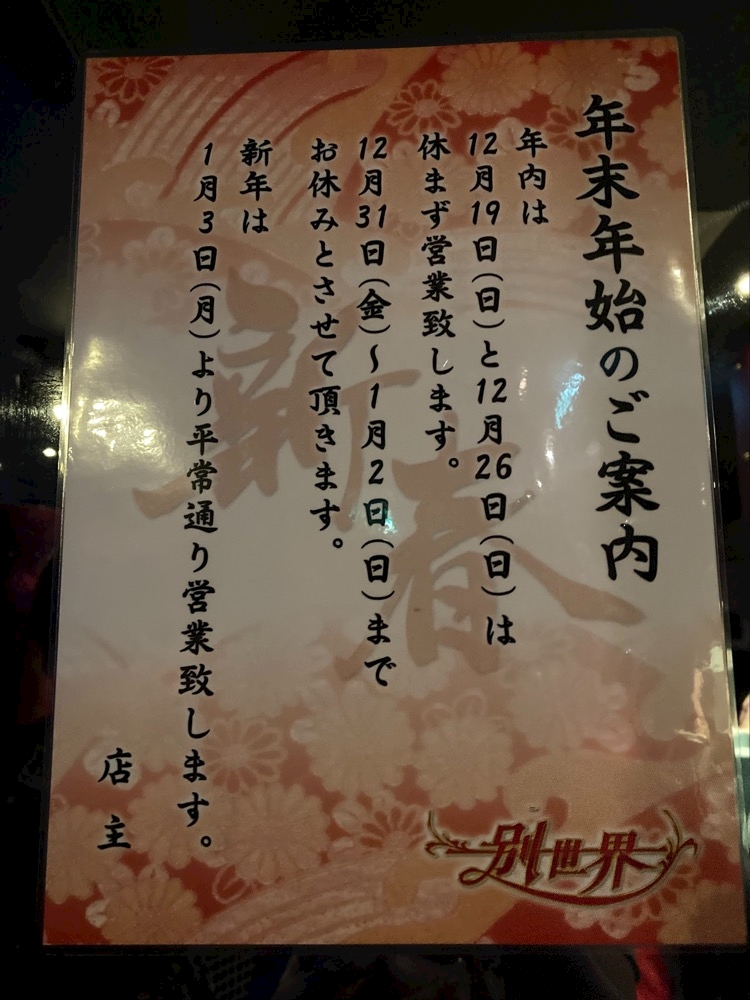 年末年始のご案内
年内は
12月19日(日)と12月26日(日)は
休まず営業致します。
12月31日(金)～1月2日(日)まで
お休みとさせて頂きます。
新年は
1月3日(月)より平常通り営業致します。
店主
新春
別世界